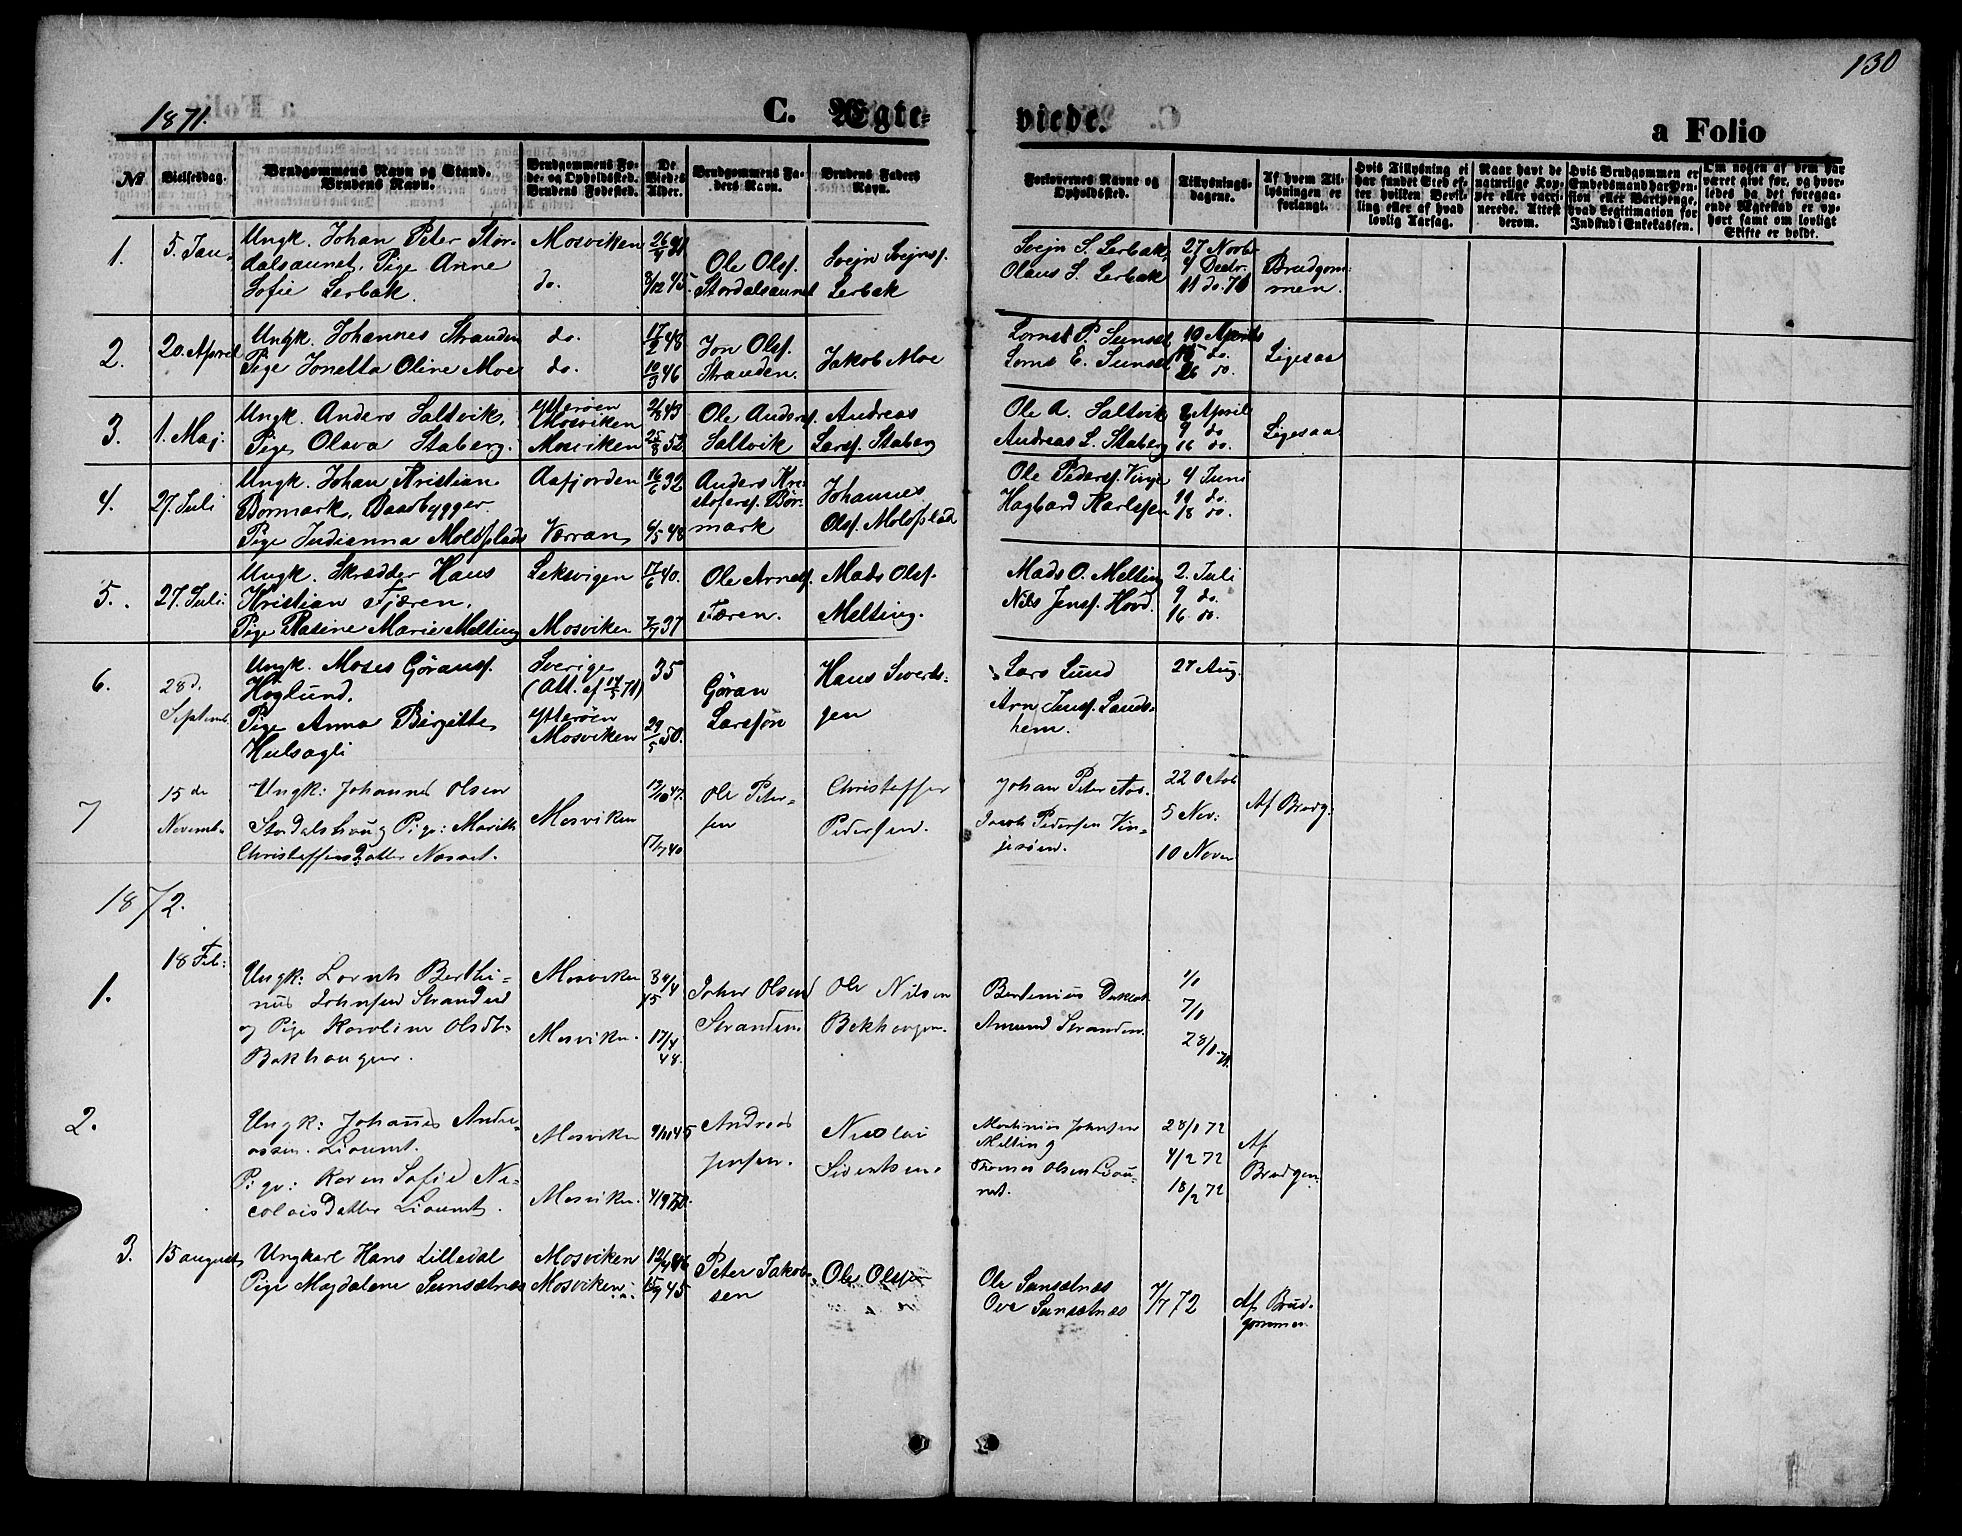 130
1871.
C. Ægte-
viede.
a Folio
№
Vielsesdag.
Brudgommens Navn og Stand.
Brudens Navn.
Brudgommens Fø-
de- og Opholdsted.
Brudens Fødested.
De
Viedes
Alder.
Brudgommens Fa-
ders Navn.
Brudens Faders
Navn.
Forlovernes Navne og
Opholdsted.
Tillysnings-
dagene.
Af hvem Til-
lysningen er
forlangt.
Hvis Tillysning ei
har fundet Sted ef-
ter hvilken Bevil-
ling eller af hvad
lovlig Aarsag.
Naar havt de
naturlige Kop-
per eller vacci-
nerede. Attest
derom.
Hvis Brudgommen er
Embedsmand har Pen-
sion eller Vartpenge,
hvad Legitimation for
Indskud i Enkekassen.
Om nogen af dem har
været givt før, og hvor-
ledes da det foregaa-
ende Ægteskab er op-
hørt samt om lovligt
Skifte er holdt.
1.
5. Jan.
Ungk. Johan Peter Stor-
dalsaunet. Pige Anne
Sofie Lerbak.
Mosviken
do.
Ole Olsf.
Stordalsaunet
Svejn Svejnsf.
Lerbak
Svejn S. Lerbak
Olaus S. Lerbak
27 Novbr
4 Decbr.
11 do. 70
Brudgom-
men.
2.
20. April
Ungk. Johannes Stranden
Pige Jonetta Oline Moe
do.
do.
17/2 48
10/3 46
Jon Olsf.
Stranden.
Jakob Moe
Lornts P. Sunset
Lorns E. Sunset
10 Aprils
do.
26 do.
Ligesaa
3.
1. Maj.
Ungk. Anders Saltvik,
Pige Olava Staberg.
Ytterøen
Mosviken
Mosviken
25/8 52
Ole Andersf.
Saltvik
Andreas
Larsf. Staberg
Ole A. Saltvik
Andreas L. Staberg
2 April
9 do
16 do.
Ligesaa
4.
27. Juli
Ungk. Johan Kristian
Bormark, Baadbygger.
Pige Judianna Moldsplads
Aafjorden
Værran
16/6 32
6/5 48
Anders Kri-
stofersf. Bor-
mark
Johannes
Olsf. Moldsplad
Ole Pedersf. Vinje
Hagbard Karlssen
4 Juni
11 do.
18 do.
5.
27. Juli.
Ungk. Skrædder Hans
Kristian Fjæren.
Pige Rasine Marie Melting
Leksvigen
Mosviken
17/6 40.
7/7 37
Ole Arnesf.
Færen.
Mads Olsf.
Melting.
Mads O. Melting
Nils Jensf. Hovd.
2. Juli
9 do.
16 do.
6.
28 d.
Septemb.
Ungk. Moses Göransf.
Höglund.
Pige Anna Birgitte
Hulsagli
Sverige
(Att. af 14/5 71)
Ytterøen
Mosviken
35
29/5 50.
Göran
Larssön
Hans Sverds-
gen
Lars Lund
Arn Jensf. Sands-
hem.
27 Aug.
7
15 de
Novemb.
Ungk: Johannes Olsen
Stordalshoug Pige: Marith
Christoffersdatter Næsset.
Mosviken
13/10 47.
17/7 40
Ole Peter-
sen
Christoffer
Pedersen.
Johan Peter Aas-
Jacob Pedersen Vin-
jesøen.
22 Octob
5 Nov:
10 Novem
Af Brudg:
1872.
1.
18 Feb:
Ungk: Lornts Berthi-
nus Johnsen Stranden
og Pige Karoline Olsdt.
Bakhaugen.
Mosviken
Mosviken.
17/4
48.
John Olsen
Stranden
Ole Nilsen
Bakhaugen.
Bertinius
Amund Stranden.
1/1
7/1
28/1 72.
2.
Ungk: Johanes Andre-
assen. Liaunet.
Pige: Karen Sofie Ni-
colaisdatter Liaunet.
Mosviken
Mosviken.
9/10 45
Andreas
Jensen.
Nicolai
Sivertsen.
Martinus Johnsen
Melting
Thomas Olsen Liau-
net.
28/1 72
4/2 72
18/2 72
Af
Brudgom.
3.
15 august
Ungkarl Hans Lilledal
Pige Magdalene Sunsætnes
Mosviken
Mosviken
15/9 45
Peter Jakob-
sen
Ole Olsen
Ole Sunsætnæs
Ove Sunsætnæs
7/7 72
Af Brud-
gommen